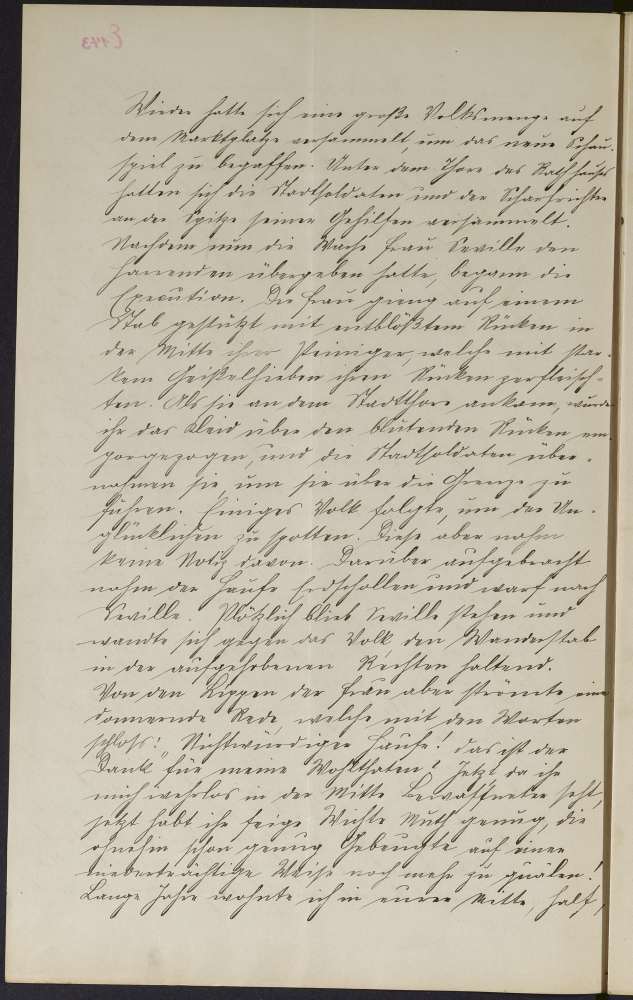 Wieder hatte sich eine große Volksmenge auf
dem Marktplatze versammelt um das neue Schau-
spiel zu begaffen. Unter dem Thore des Rathhauses
hatten sich die Stadtsoldaten und der Scharfrichter
an der Spitze seiner Gehilfen versammelt.
Nachdem nun die Wache Frau Seville den
Harrenden übergeben hatte, begann die
Execution. Die Frau gieng auf einem
Stab gestützt mit entblößtem Rücken in
der Mitte ihrer Peiniger, welche mit star-
kem Geißelhieben ihren Rücken zerfleisch-
ten. Als sie an dem Stadtthore ankam, wurde
ihr das Kleid über den blutenden Rücken em-
porgezogen, und die Stadtsoldaten über-
nahmen sie, um sie über die Grenze zu
führen. Einiges Volk folgte, um der Un-
glücklichen zu spotten. Diese aber nahm
keine Notiz davon. Darüber aufgebracht
nahm der Haufe Erdschollen und warf nach
Seville. Plötzlich blieb Seville stehen und
wandte sich gegen das Volk, den Wanderstab
in der aufgehobenen Rechten haltend.
Von den Lippen der Frau aber strömte eine
donnernde Rede, welche mit den Worten
schloß: "Nichtswürdiger Haufe! das ist der
Dank für meine Wohlthaten! Jetzt da ihr
mich wehrlos in der Mitte Bewaffneter seht,
jetzt habt ihr feige Wichte Muth genug, die
ohnehin schon genug Gebeugte auf eine
niederträchtige Weise noch mehr zu quälen!
Lange Jahre wohnte ich in eurer Mitte, half,